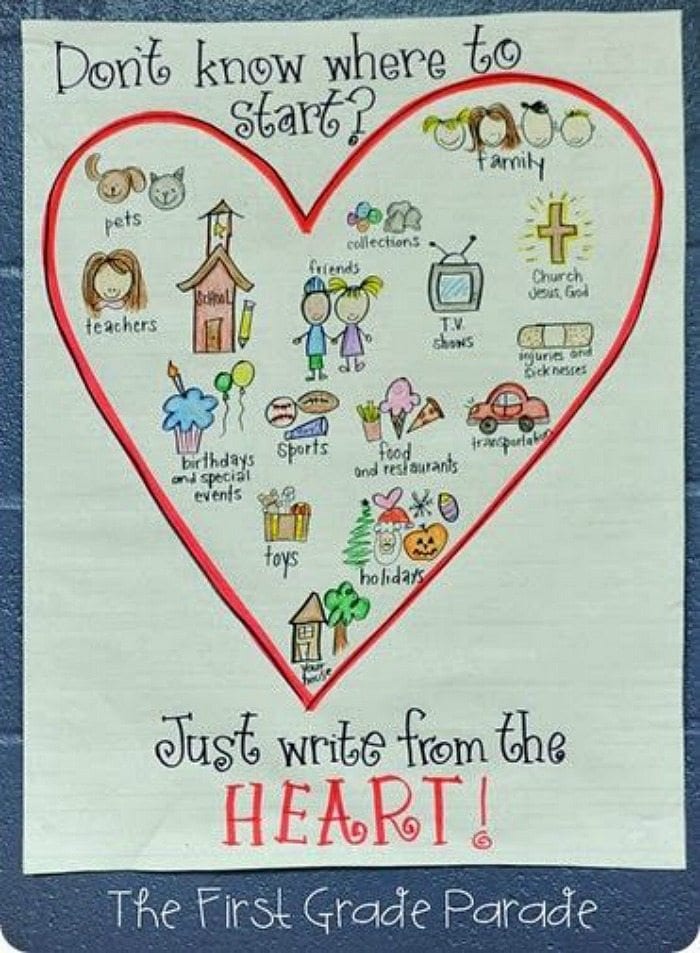 Don't know where to
start?
family
pets
collections
Church
Jesus, God
friends
SCHOOL
teachers
T.V.
shows
injuries and
sicknesses
birthdays
and special
events
sports
food
and restaurants
transportation
toys
holidays
your
house
Just write from the
HEART!
The First Grade Parade